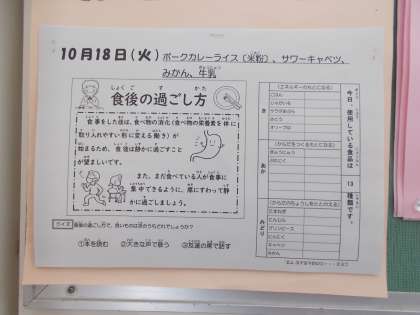 10月18日(火) ポークカレーライス(米粉)、サワーキャベツ、
みかん、牛乳
食後の過ごし方
食事をした後は、食べ物の消化(食べ物の栄養素を体に
取り入れやすい形に変える働き)が
始まるため、食後は静かに過ごすこと
が望ましいです。
また、まだ食べている人が食事に
集中できるように、席にすわって静
かに過ごしましょう。
クイズ 食後の過ごし方で、良いものは次のうちどれでしょうか?
①本を読む ②大きな声で歌う ③友達の席で話す
今日、使用している食品は 13 種類です。
(エネルギーのもとになる)
き
ごはん
じゃがいも
さとう
(からだをつくるもとになる)
あか
ぎゅうにゅう
(からだのちょうしをととのえる)
みどり
たまねぎ
にんじん
グリンピース
にんにく
キャベツ
みかん